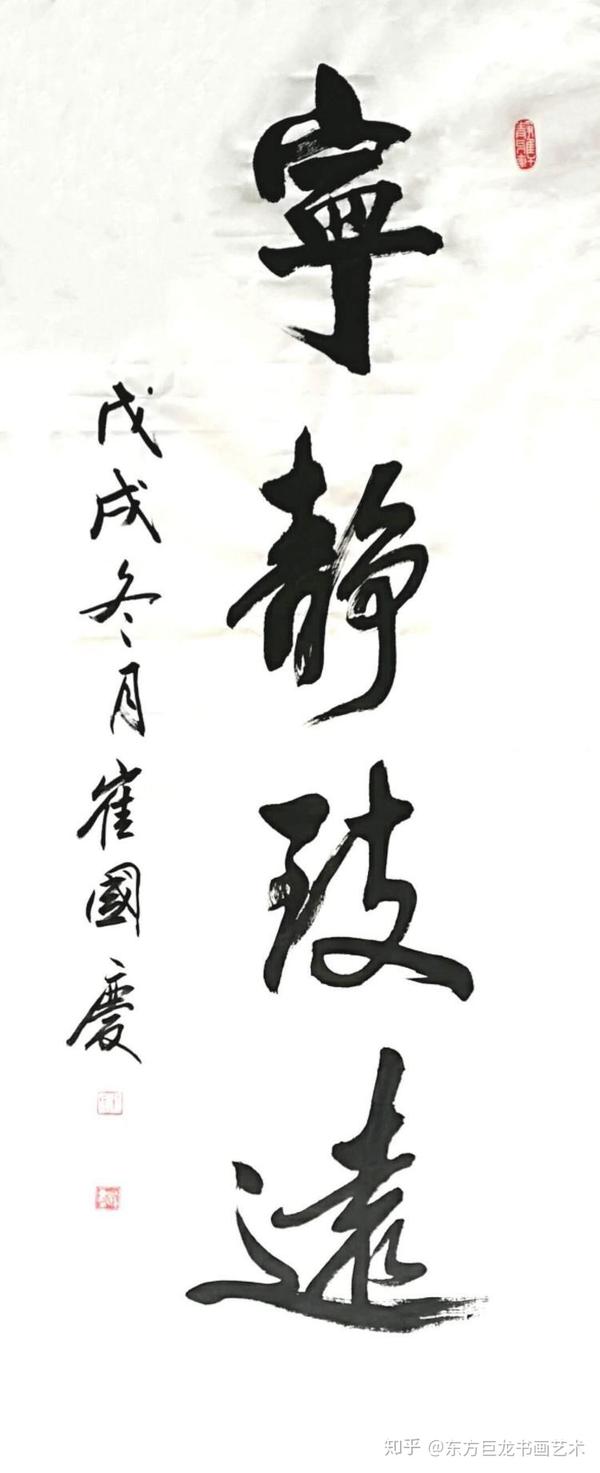 寧靜致遠
戊戌冬月崔國慶
知乎 @东方巨龙书画艺术